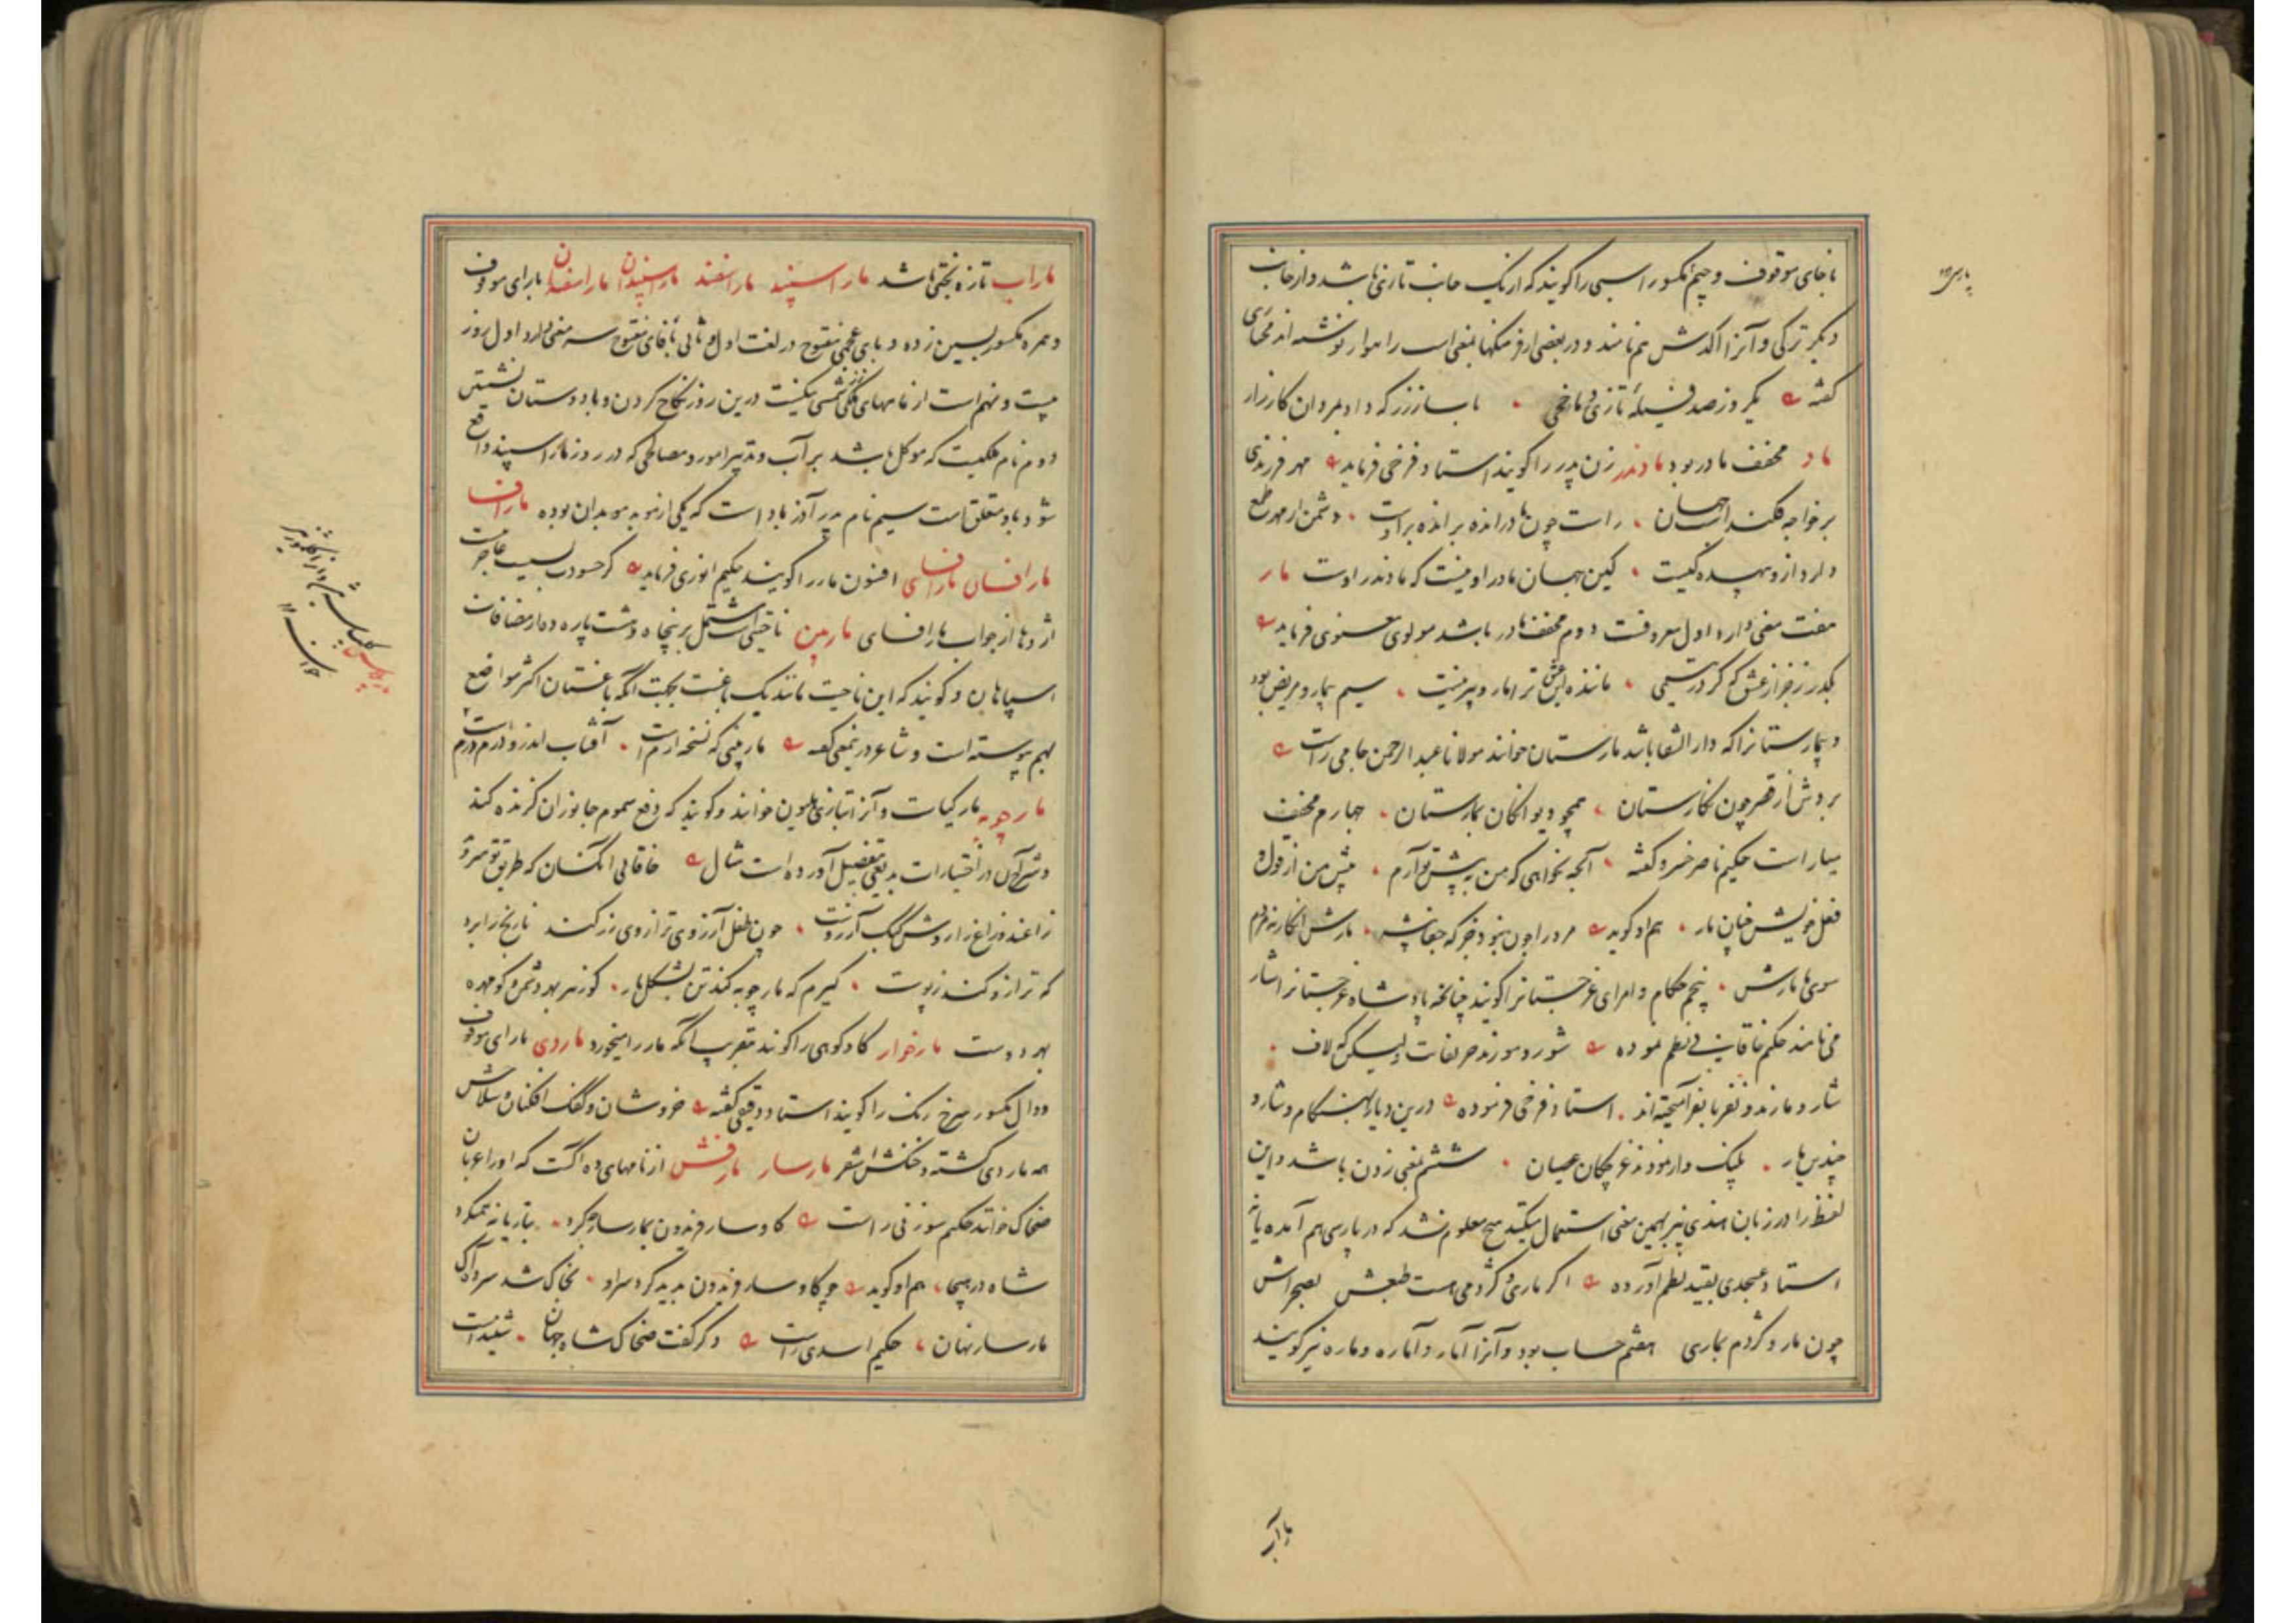 با خای موقوف و جیم مکسور اسپی را گویند که از یک جانب تازی باشد و از جانب
دیگر ترکی و آنرا اکدش هم نامند و در بعضی از فرهنگها بمعنی اسب راهوار نوشته اند مختاری
گفته یکروز صد تازی و ماخچی با ساز زر که داد بمردان کارزار
ماد مخفف مادر بود مادندر زن پدر را گویند استاد فرخی فرماید مهر فرزندی
بر خواجه فکنداست جهان راست چون مادر اندر بر اندر است دشمن از مهر طمع
دارد از و بیهده گیست کین جهان مادر او نیست که مادندر اوست مار
هفت معنی دارد اول معروفست دوم مخفف مادر باشد مولوی معنوی فرماید
بگذر ز خز از عشق که گر در یتیمی ماننده این عشق ترا مار و پدر نیست سیم بیمار و مریض بود
و بیمارستانرا که دار الشفا باشد مارستان خوانند مولانا عبد الرحمن جامی راست
بردش از قصر چون نگارستان همچو دیوانگان بمارستان چهارم مخفف
میار است حکیم ناصر خسرو گفته آنچه نخواهی که من به پیش تو آرم پیش من از قول و
فعل خویش چنان مار هم او گوید
سوی ما مارش پنجم حکام و امرای غرجستانرا گویند چنانچه پادشاه غرجستانرا شار
می نامند حکیم خاقانی نظم نموده
شار و مارند و نفر با نفر آمیخته اند استاد فرخی فرموده درین دیار بهنگام و شار و
چندین بار پلنگ وار نمودند غرچگان عصیان ششم بمعنی زدن باشد و این
لفظ را در زبان هندی نیز بهمین معنی استعمال میکنند هیچ معلوم نشد که در پارسی هم آمده یا نه
استاد عسجدی بقید نظم آورده اگر ماری و کژدمی هست طبعش بصحراش
چون مار و کژدم بماری هفتم حساب بود و آنرا آمار و آماره و ماره نیز گویند
ماراب
ماراب تازه بختی باشد مار اسپند مار اسفند مار اسپندان مار اسفندان با رای موقوف
و همزه مکسور بسین زده و بای عجمی مفتوح در لغت اول و ثانی با فای مفتوح سه معنی دارد اول روز
بیست و نهم است از ماههای ملکی شمسی نیکست درین روز نکاح کردن و با دوستان نشستن
دوم نام ملکیست که موکل باشد بر آب و تدبیر امور و مصالحی که در روز مار اسپند واقع
شود باو متعلق است سیم نام پدر آذرباد است که یکی از موبد موبدان بوده مار افسا
مار افسان مار افسای افسون مار را گویند حکیم انوری فرماید گر حسودت بسیست عاجز نیست
اژدها از جواب مار افسای ماربین ناحیتی است مشتمل بر پنجاه و هشت پاره ده از مضافات
اسپاهان و گویند که این ناحیت مانند یک باغست بجهت آنکه باغستان اکثر مواضع
بهم پیوسته است و شاعر در بمعنی گفته ماربینی که نسخه ارم است آفتاب اندرو درم درم است
مارچوبه مارگیاست و آنرا بتازی هلیون خوانند و گویند که دفع سموم جانوران گزنده کند
و شرح آن در اختیارات بدیعی بتفصیل آورده است مثال خاقانی آنکسان که طریق تو میروند
زاغند و زاغ را روش کبک آرزوست چون طفل که آرزوی ترازوی زر کند نارنج را برد
که ترازو کند ز پوست گیرم که مارچوبه کند تن بشکل مار کو زهر بهر دشمن و کو مهره
بهر دوست مارخوار گاو کوهی را گویند بتقریب آنکه مار را میخورد ماردی با رای موقوف
و دال مکسور سرخ رنگ را گویند استاد دقیقی گفته خروشان و کفک افکنان و سلاحش
همه ماردی گشته و خنگش اشقر مارسار مارفش از نامهای ده آکست که او را عربان
ضحاک خوانند حکیم سوزنی راست گاوسار فریدون بمارسار چه کرد بتازیانه همکرد
شاه در هیجا هم او گوید چو گاوسار فریدون پدید کرد سراو بخاک شد سر ده آک
مارسار نهان حکیم اسدی راست دگر گفت ضحاک شاه جهان شنیدست